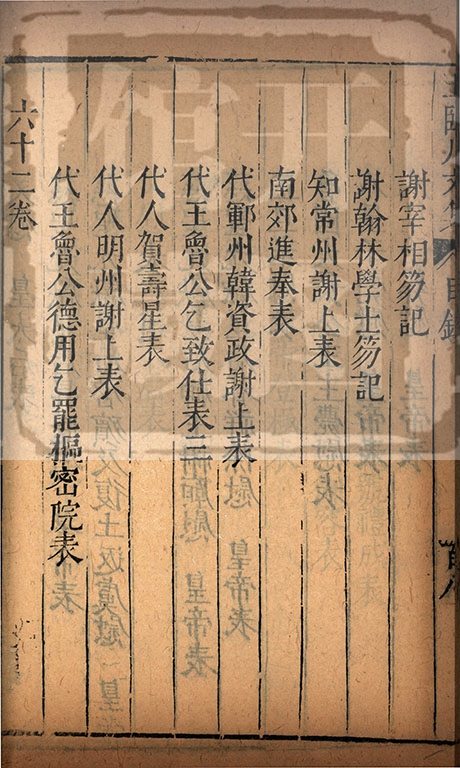 臨川文集 目錄
謝宰相笏記
謝翰林學士笏記
知常州謝上表
南郊進奉表
代鄆州韓資政謝上表
代王魯公乞致仕表三
代人賀壽星表
代人明州謝上表
代王魯公德用乞罷樞密院表
六十二卷